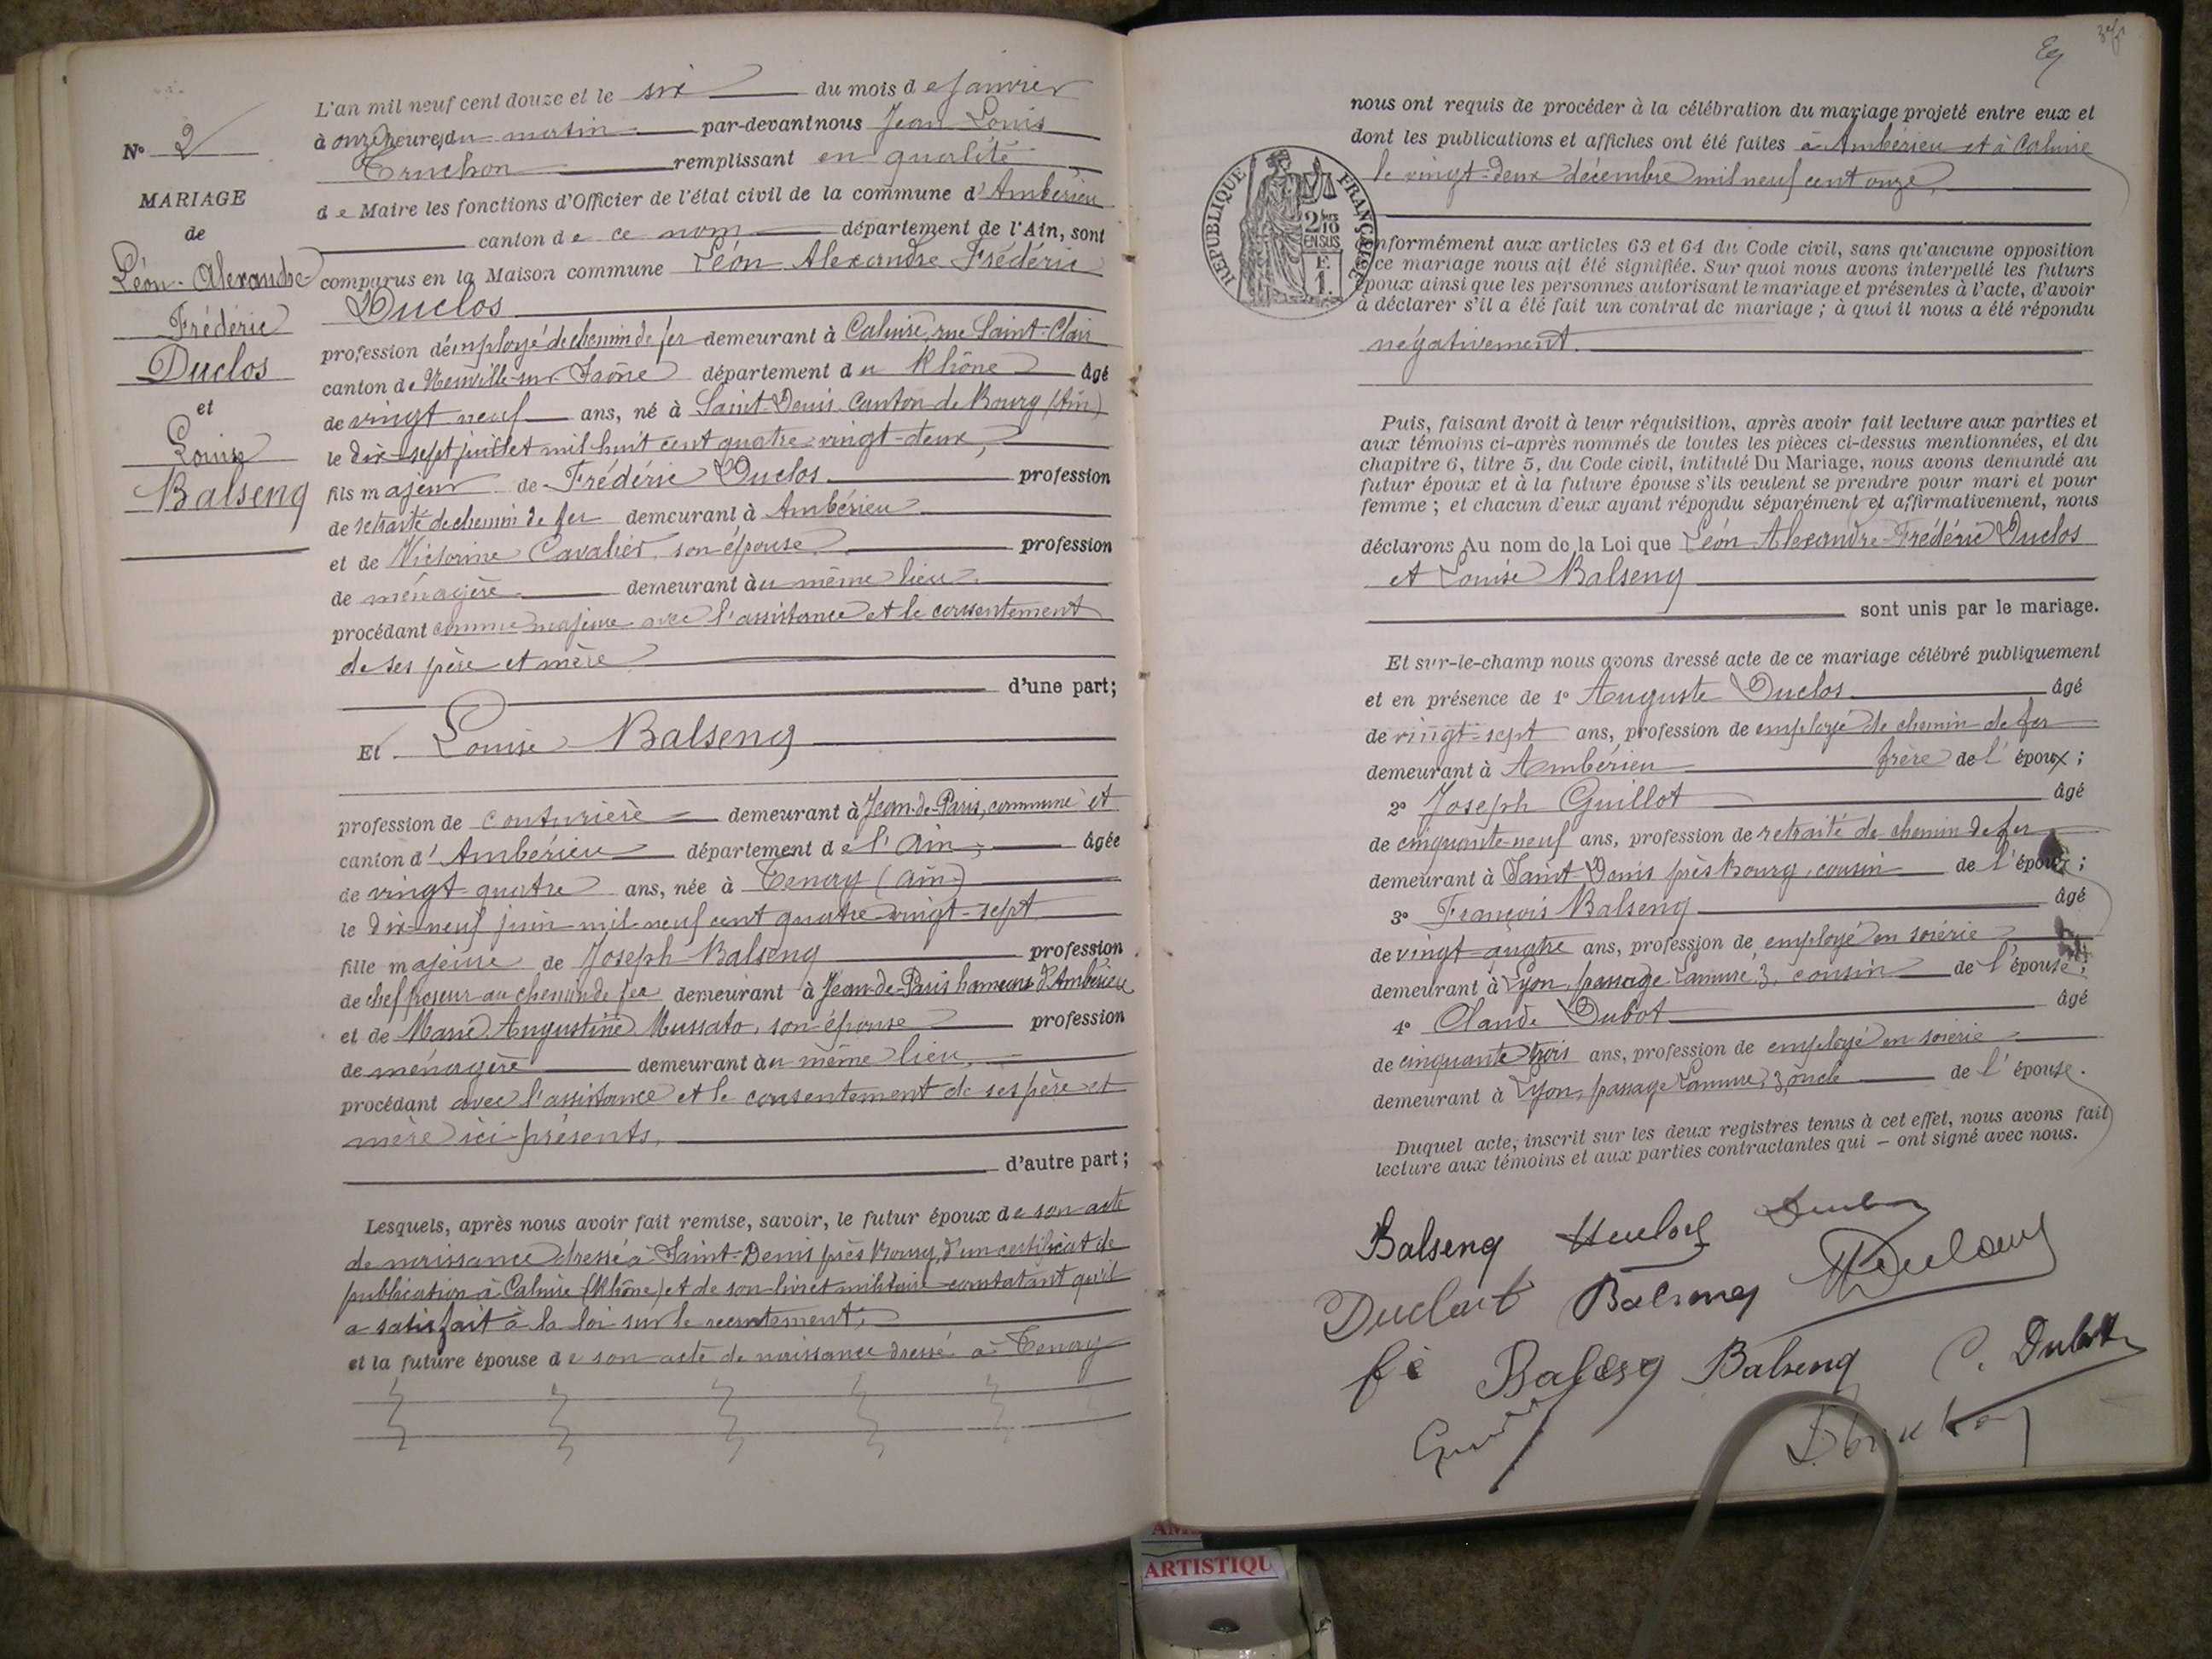 N° 2
MARIAGE
de
Léon-Alexandre
Frédéric
Duclos
et
Louise
Balseng
L'an mil neuf cent douze et le six du mois de Janvier
à onze heures du matin par-devant nous Jean Louis
Truchon remplissant en qualité
de Maire les fonctions d'Officier de l'état civil de la commune d'Ambérieu
canton de ce nom département de l'Ain, sont
comparus en la Maison commune Léon Alexandre Frédéric
Duclos
profession d'employé de chemin de fer demeurant à Caluire, rue Saint-Clair
canton de Neuville-sur-Saône département du Rhône âgé
de vingt neuf ans, né à Saint-Denis, Canton de Bourg (Ain)
le dix-sept juillet mil huit cent quatre vingt-deux,
fils majeur de Frédéric Duclos profession
de retraité de chemin de fer demeurant à Ambérieu
et de Victorine Cavalier, son épouse, profession
de ménagère demeurant au même lieu
procédant comme majeur avec l'assistance et le consentement
de ses père et mère
d'une part;
Et Louise Balseng
profession de couturière demeurant à Jean-de-Paris, commune et
canton d'Ambérieu département de l'Ain, âgée
de vingt-quatre ans, née à Tenay (Ain)
le dix-neuf juin mil neuf cent quatre-vingt-sept
fille majeure de Joseph Balseng profession
de chef poseur au chemin de fer demeurant à Jean-de-Paris hameau d'Ambérieu
et de Marie Augustine Mussato, son épouse profession
de ménagère demeurant au même lieu,
procédant avec l'assistance et le consentement de ses père et
mère ici présents,
d'autre part;
Lesquels, après nous avoir fait remise, savoir, le futur époux de son acte
de naissance dressé à Saint-Denis près Bourg, d'un certificat de
publication à Caluire (Rhône) et de son livret militaire constatant qu'il
a satisfait à la loi sur le recrutement;
et la future épouse de son acte de naissance dressé à Tenay
nous ont requis de procéder à la célébration du mariage projeté entre eux et
dont les publications et affiches ont été faites à Ambérieu et à Caluire
le vingt-deux décembre mil neuf cent onze,
RÉPUBLIQUE FRANÇAISE
2/10
EN SUS
E.
1.
onformément aux articles 63 et 64 du Code civil, sans qu'aucune opposition
ce mariage nous ait été signifiée. Sur quoi nous avons interpellé les futurs
époux ainsi que les personnes autorisant le mariage et présentes à l'acte, d'avoir
à déclarer s'il a été fait un contrat de mariage; à quoi il nous a été répondu
négativement.
Puis, faisant droit à leur réquisition, après avoir fait lecture aux parties et
aux témoins ci-après nommés de toutes les pièces ci-dessus mentionnées, et du
chapitre 6, titre 5, du Code civil, intitulé Du Mariage, nous avons demandé au
futur époux et à la future épouse s'ils veulent se prendre pour mari et pour
femme; et chacun d'eux ayant répondu séparément et affirmativement, nous
déclarons Au nom de la Loi que Léon Alexandre Frédéric Duclos
et Louise Balseng
sont unis par le mariage.
Et sur-le-champ nous avons dressé acte de ce mariage célébré publiquement
et en présence de 1° Auguste Duclos âgé
de vingt-sept ans, profession de employé de chemin de fer
demeurant à Ambérieu frère de l'époux;
2° Joseph Guillot âgé
de cinquante-neuf ans, profession de retraité de chemin de fer
demeurant à Saint-Denis près Bourg, cousin de l'époux;
3° François Balseng âgé
de vingt-quatre ans, profession de employé en soierie
demeurant à Lyon, passage Lamure, 3, cousin de l'épouse;
4° Claude Dubot âgé
de cinquante trois ans, profession de employé en soierie
demeurant à Lyon, passage Lamure, 3, oncle de l'épouse.
Duquel acte, inscrit sur les deux registres tenus à cet effet, nous avons fait
lecture aux témoins et aux parties contractantes qui – ont signé avec nous.
Balseng
Balseng
Balseng
C. Dubot
ARTISTIQU